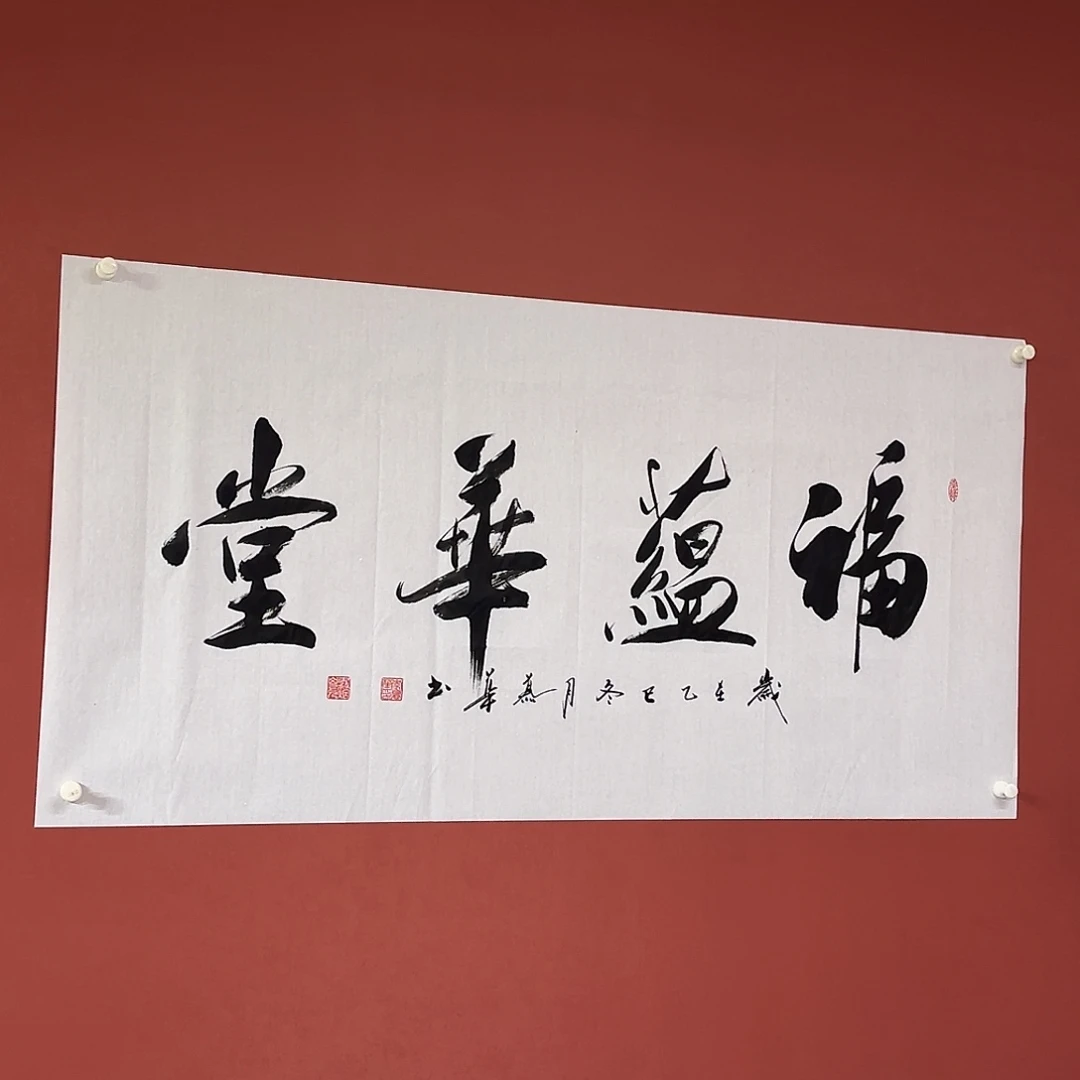 福蘊華堂
歲在乙巳冬月燕華书